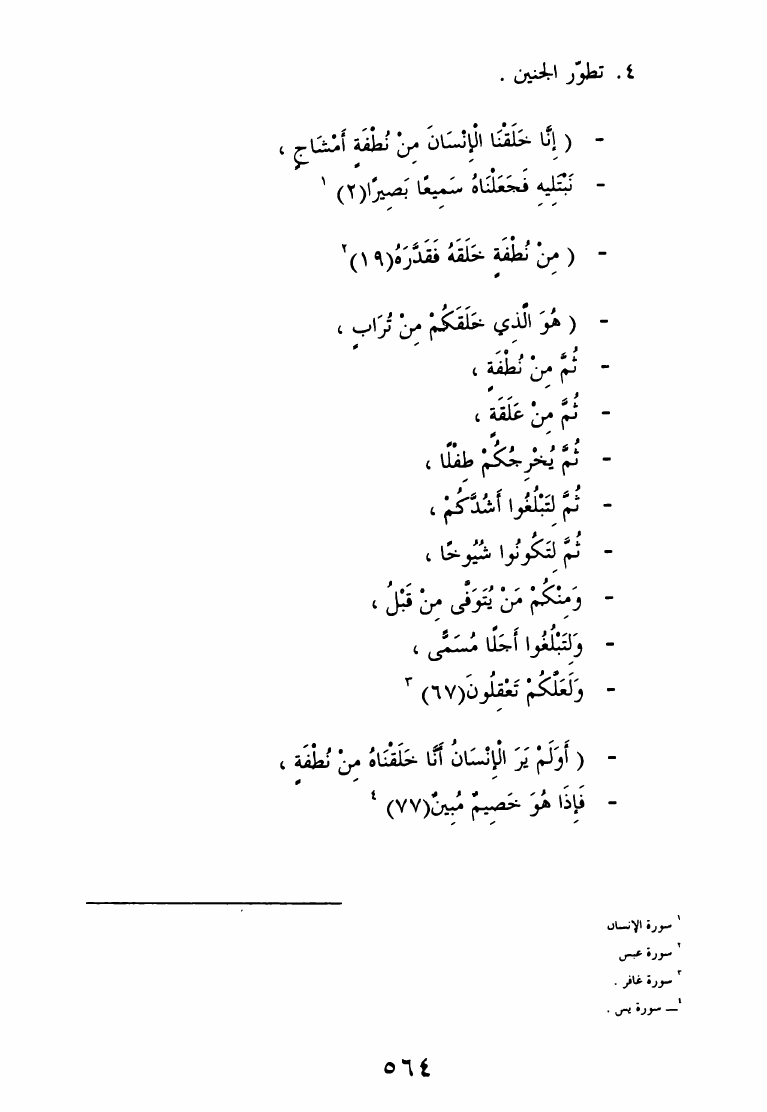 ٤. تطوّر الجنين .
- ( إِنَّا خَلَقْنَا الْإِنْسَانَ مِنْ نُطْفَةٍ أَمْشَاجٍ ،
- نَبْتَلِيهِ فَجَعَلْنَاهُ سَمِيعًا بَصِيرًا(٢) ١
- ( مِنْ نُطْفَةٍ خَلَقَهُ فَقَدَّرَهُ(١٩)٢
- ( هُوَ الَّذِي خَلَقَكُمْ مِنْ تُرَابٍ ،
- ثُمَّ مِنْ نُطْفَةٍ ،
- ثُمَّ مِنْ عَلَقَةٍ ،
- ثُمَّ يُخْرِجُكُمْ طِفْلًا ،
- ثُمَّ لِتَبْلُغُوا أَشُدَّكُمْ ،
- ثُمَّ لِتَكُونُوا شُيُوخًا ،
- وَمِنْكُمْ مَنْ يُتَوَفَّى مِنْ قَبْلُ ،
- وَلِتَبْلُغُوا أَجَلًا مُسَمًّى ،
- وَلَعَلَّكُمْ تَعْقِلُونَ(٦٧) ٣
- ( أَوَلَمْ يَرَ الْإِنْسَانُ أَنَّا خَلَقْنَاهُ مِنْ نُطْفَةٍ ،
- فَإِذَا هُوَ خَصِيمٌ مُبِينٌ(٧٧) ٤
١ سورة الإنسان
٢ سورة عبس
٣ سورة غافر .
٤ــ سورة يس .
٥٦٤